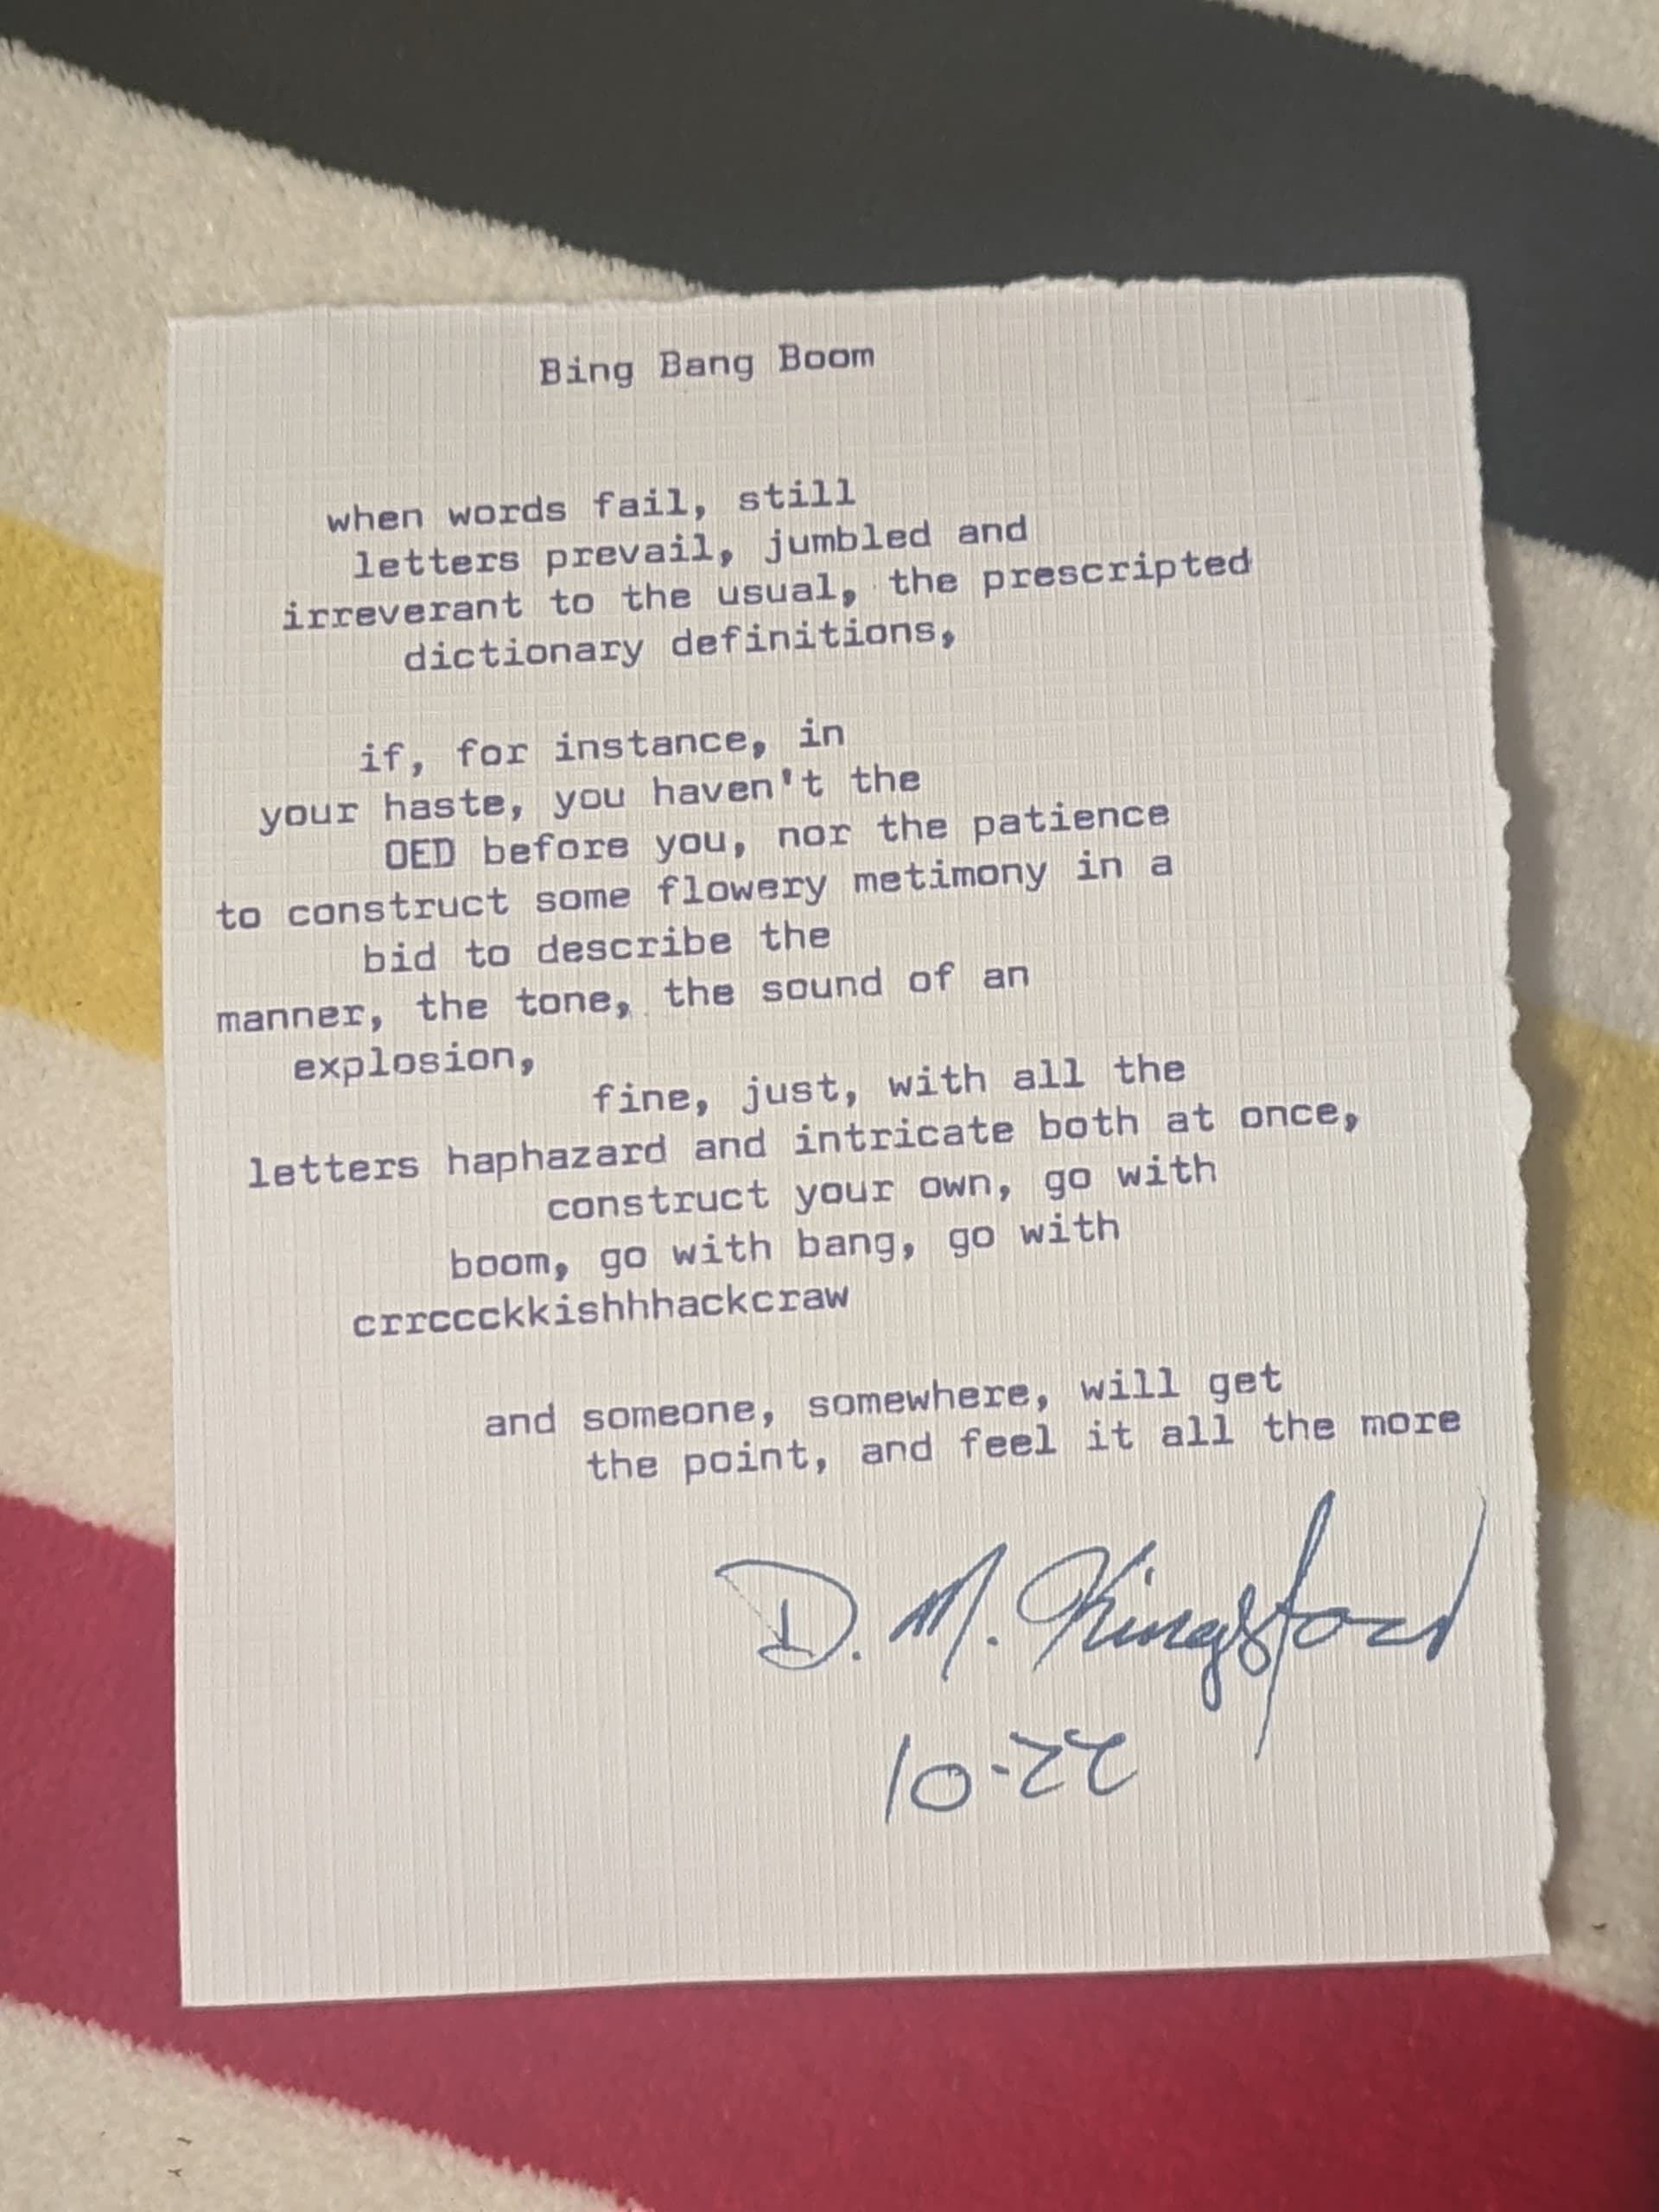 Bing Bang Boom
when words fail, still
letters prevail, jumbled and
irreverant to the usual, the prescripted
dictionary definitions,
if, for instance, in
your haste, you haven't the
OED before you, nor the patience
to construct some flowery metimony in a
bid to describe the
manner, the tone, the sound of an
explosion,
fine, just, with all the
letters haphazard and intricate both at once,
construct your own, go with
boom, go with bang, go with
crrcccckkishhhackcraw
and someone, somewhere, will get
the point, and feel it all the more
D. M. Kingsford
10-22